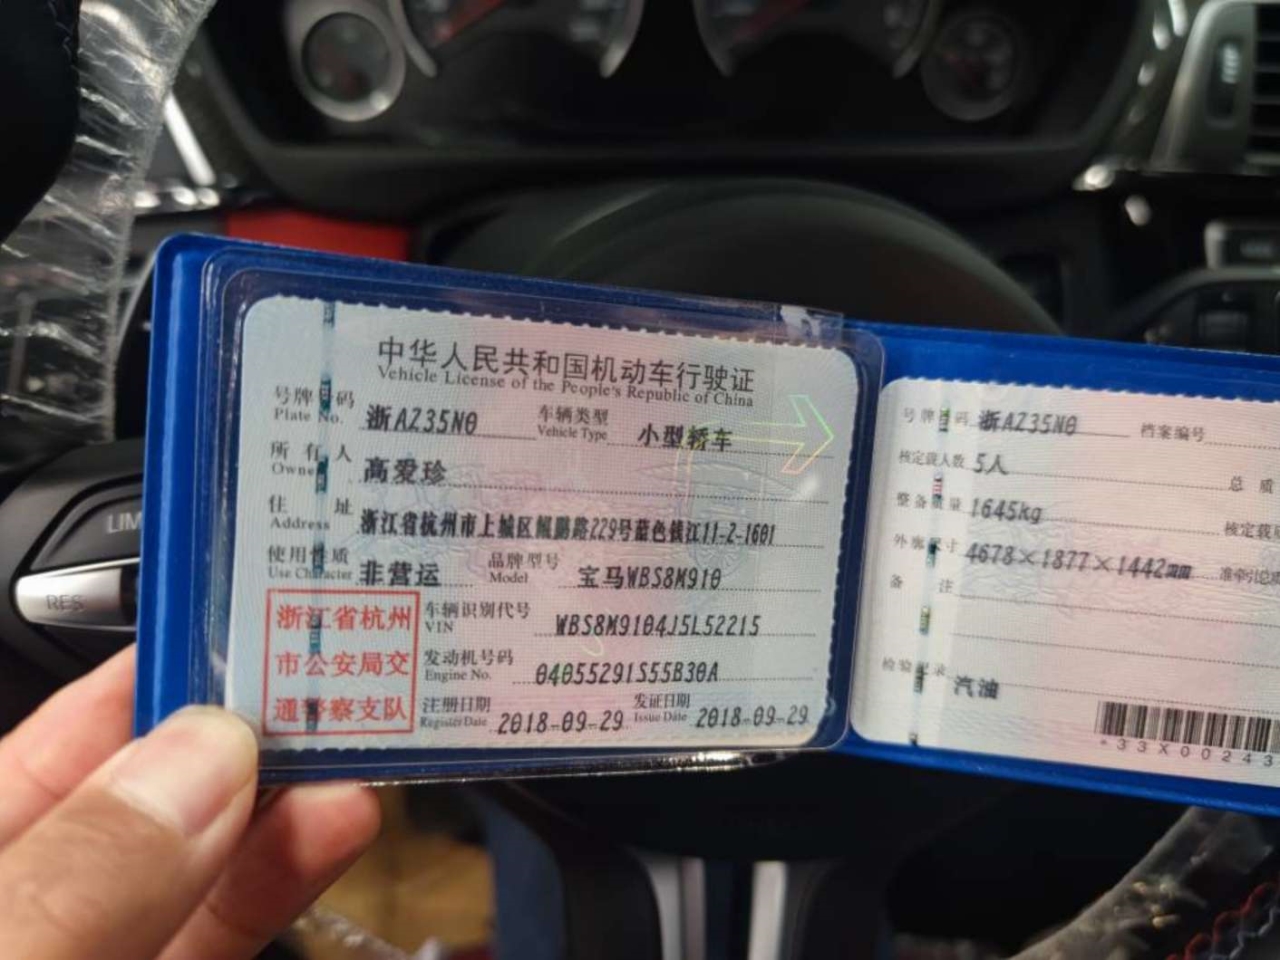 中华人民共和国机动车行驶证
Vehicle License of the People's Republic of China
号牌号码 浙AZ35N0 车辆类型 小型轿车
Plate No. Vehicle Type
所有人 高爱珍
Owner
住址 浙江省杭州市上城区鲲鹏路229号蓝色钱江11-2-1601
Address
使用性质 非营运 品牌型号 宝马WBS8M910
Use Character Model
浙江省杭州
市公安局交
通警察支队
车辆识别代号 WBS8M9104J5L52215
VIN
发动机号码 04055291S55B30A
Engine No.
注册日期 2018-09-29 发证日期 2018-09-29
Register Date Issue Date
号牌号码 浙AZ35N0 档案编号
核定载人数 5人 总质
整备质量 1645kg 核定载
外廓尺寸 4678×1877×1442 准牵引总
备注
检验记录 汽油
*33X00243
LIM
RES